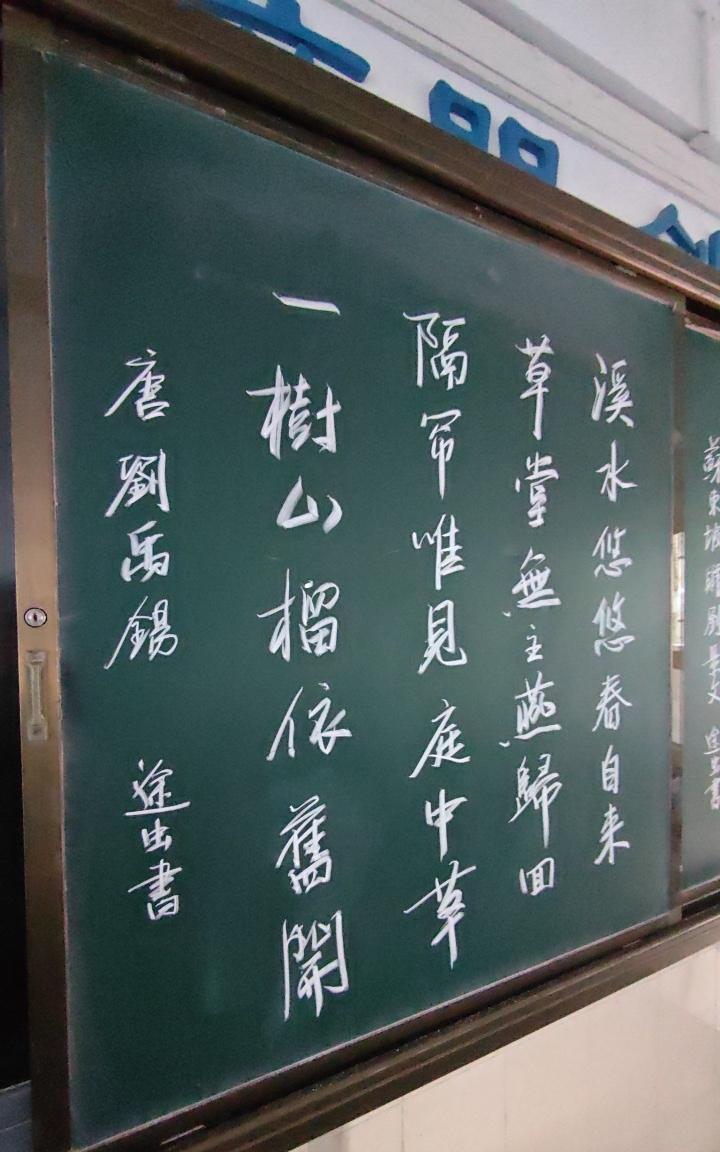 蘇東坡
溪水悠悠春自来
草堂無主燕歸回
隔帘唯見庭中草
一樹山榴依舊開
唐劉禹錫 途出書